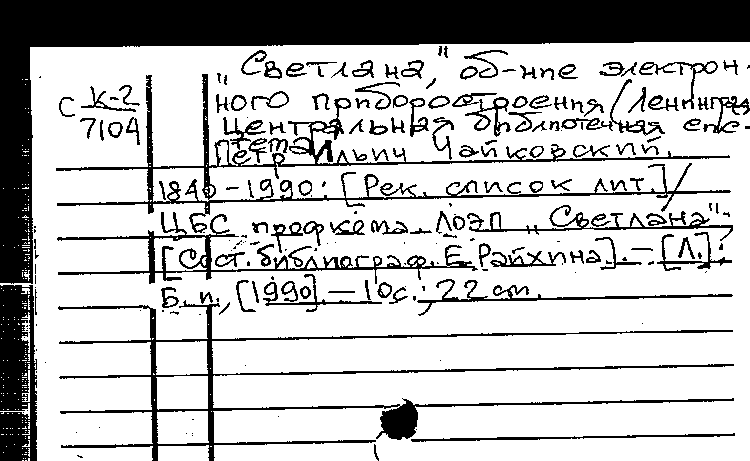 "Светлана," об-ние электрон-
ного приборостроения /Ленинград/
Центральная библиотечная сис-
тема
С К-2
7104
Петр Ильич Чайковский.
1840-1990: [Рек. список лит.] /
ЦБС профкома ЛОЭП "Светлана";
[Сост. библиограф. Е. Райхина]. — [Л.]:
Б. и., [1990]. — 10 с.; 22 см.